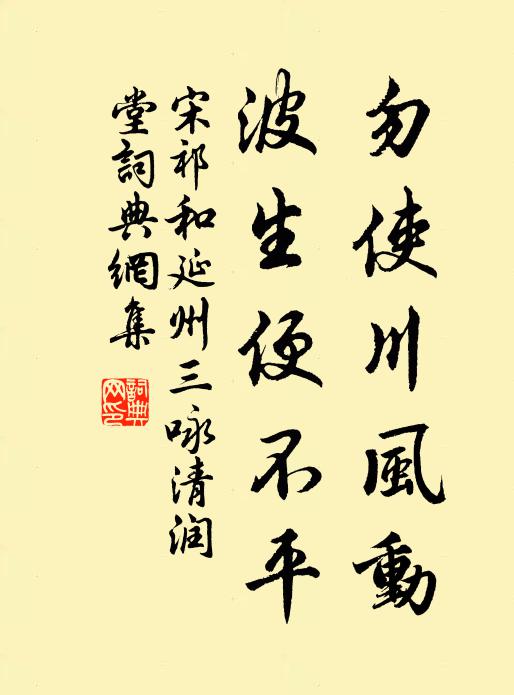 勿使川風動
波生便不平
宋祁和延州三咏清润
堂詞典網集
詞典
网印